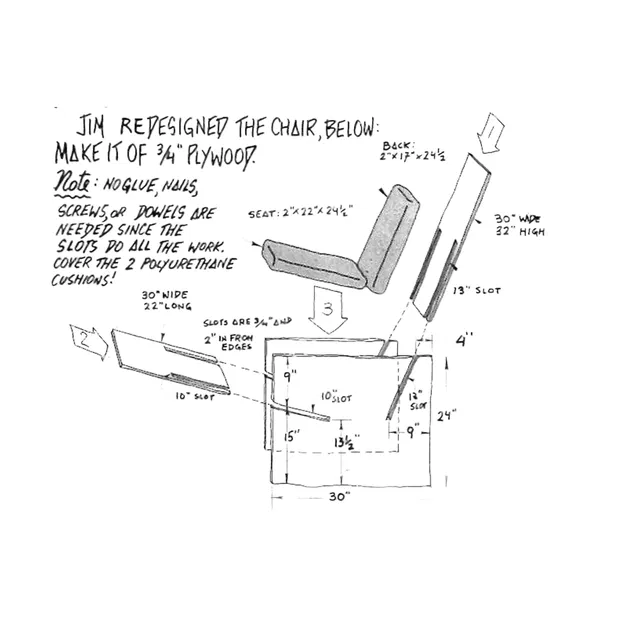 JIM REDESIGNED THE CHAIR, BELOW:
MAKE IT OF 3/4" PLYWOOD.
Note: NO GLUE, NAILS,
SCREWS, OR DOWELS ARE
NEEDED SINCE THE
SLOTS DO ALL THE WORK.
COVER THE 2 POLYURETHANE
CUSHIONS!
1
BACK:
2"X17"X24½
SEAT: 2"X22"X24½"
30" WIDE
32" HIGH
13" SLOT
30" WIDE
22" LONG
2
10" SLOT
SLOTS ARE 3/4" AND
2" IN FROM
EDGES
3
4"
9"
10" SLOT
13"
SLOT
24"
15"
13½"
9"
30"